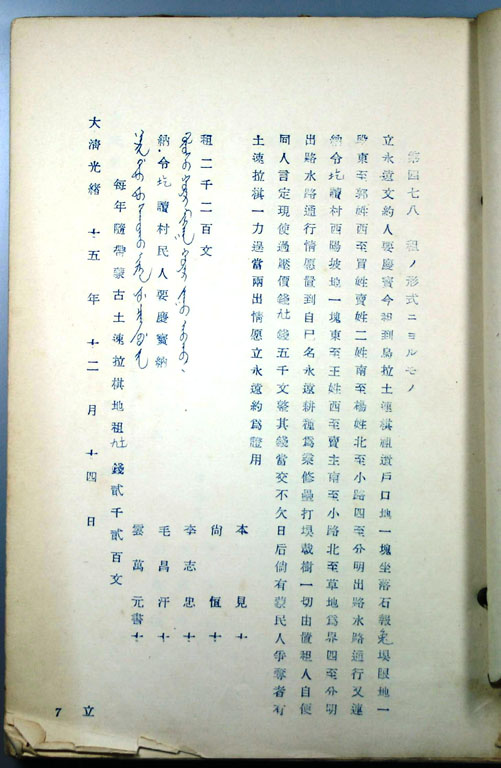 第四七八 租ノ形式ニヨルモノ
立永遠文約人要慶賓今租到烏拉土速棋祖遺戶口地一塊坐落石報兔垻眼地一
段東至郭姓西至買姓賣姓二姓南至楊姓北至小路四至分明出路水路通行又連
納令圪讀村西陽坡地一塊東至王姓西至賣主南至小路北至草地爲界四至分明
出路水路通行情愿置到自己名永遠耕種爲業修壘打垻栽樹一切由置租人自便
同人言定現使過壓價錢 錢五千文整其錢當交不欠日后倘有蒙民人爭奪者有
土速拉棋一力逞當兩出情愿立永遠約爲證用
本見十
租二千二百文 尙恆十
李志忠十
納令圪讀村民人要慶賓納 毛昌汗十
雲萬元書十
每年隨帶蒙古土速拉棋地租 錢貳千貳百文
大淸光緒十五年十二月十四日
立
7